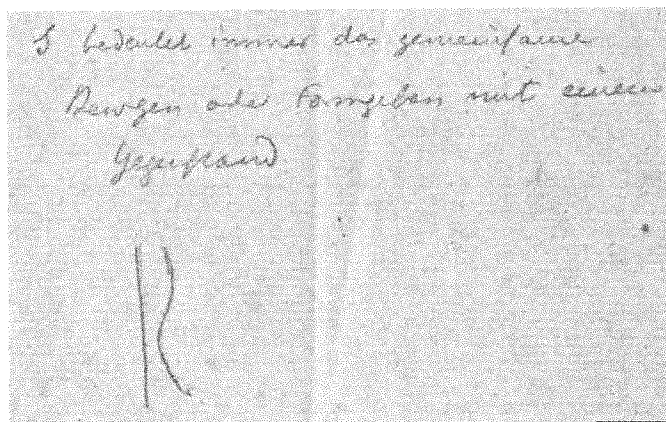 S bedeutet immer das gemeinsame
Bewegen oder Formgeben mit einem
Gegenstand
R